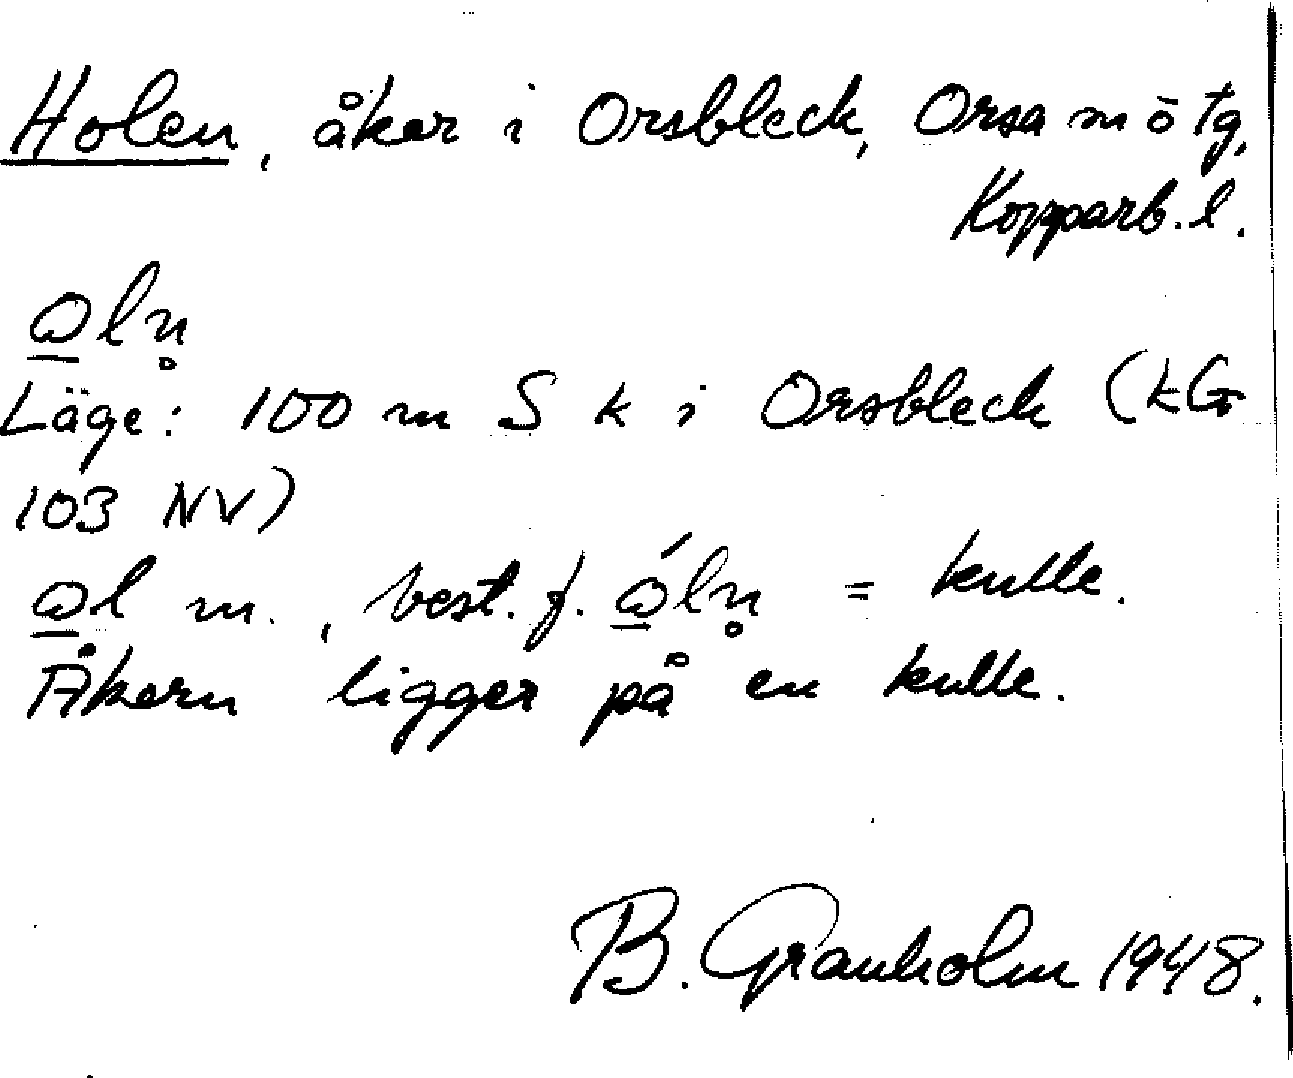 Holen, åker i Orsbleck, Orsa m ö tg,
Kopparb. l.
ω̲ln̥
Läge: 100 m S k i Orsbleck (kG
103 NV)
ω̲l m., best. f. ώ̲ln̥ = kulle.
Åkern ligger på en kulle.
B. Granholm 1948.